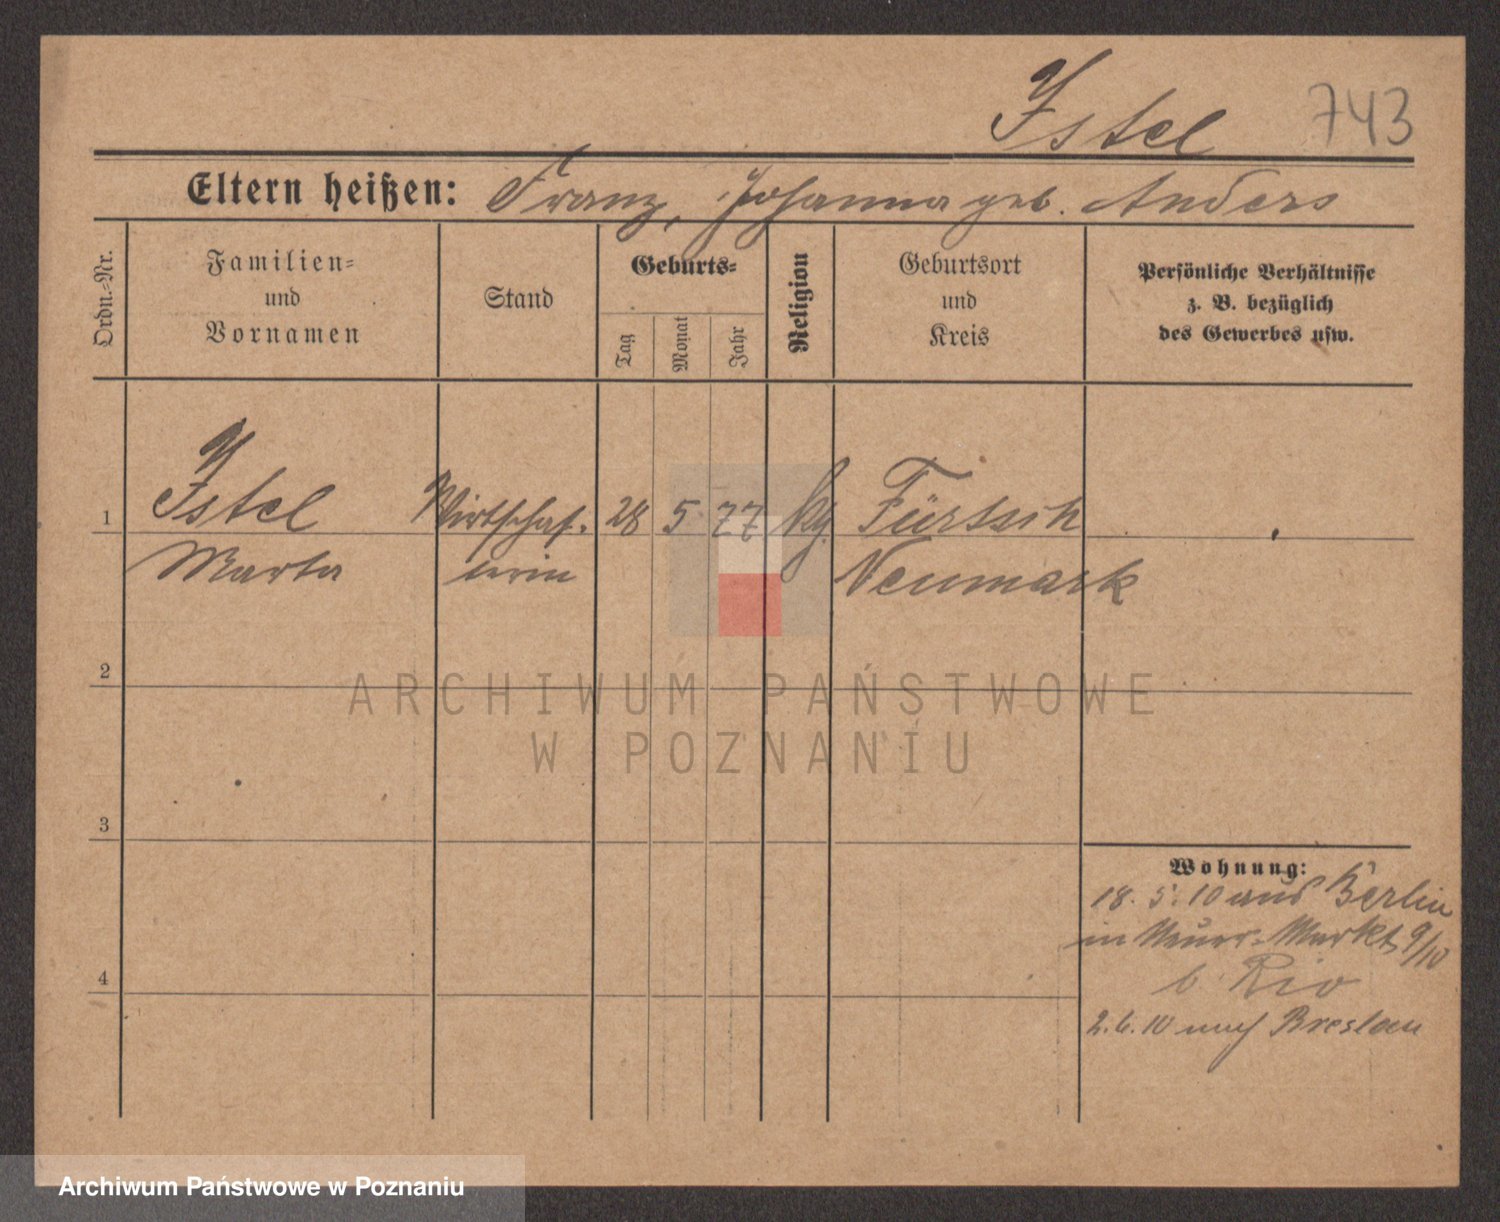 Istel 743
Eltern heißen: Franz, Johanna geb. Anders
Ordn.-Nr.
Familien-
und
Vornamen
Stand
Geburts-
Tag
Monat
Jahr
Religion
Geburtsort
und
Kreis
Persönliche Verhältnisse
z. B. bezüglich
des Gewerbes usw.
1 Istel Wirtschaf- 28 5 77 kg.
Marta terin Neumark
2
ARCHIWUM PAŃSTWOWE
W POZNANIU
3
Wohnung:
18. 5. 10 aus Berlin
in Neuer-Markt 9/10
b. Rio
4
2. 6. 10 nach Breslau
Archiwum Państwowe w Poznaniu